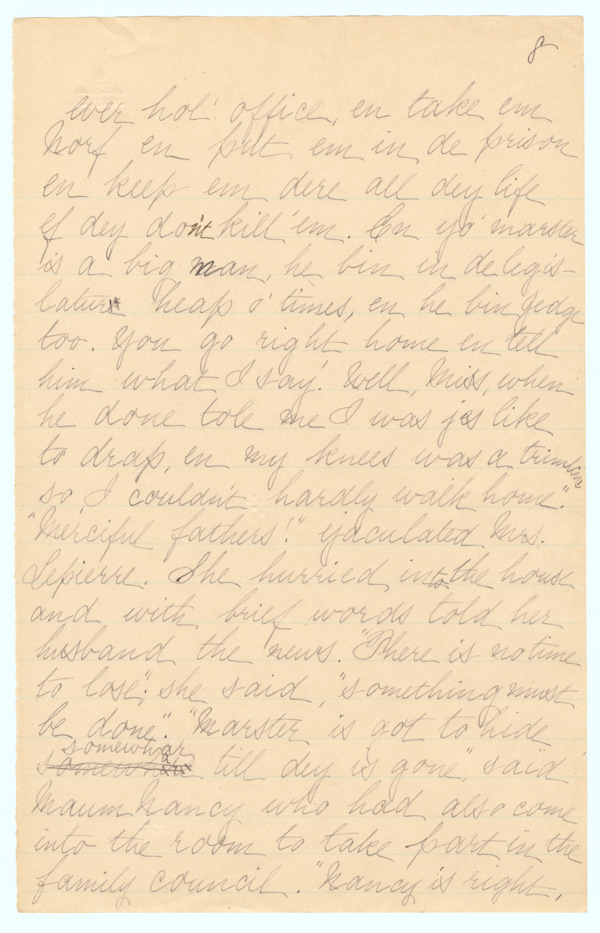 8
ever hol' office, en take em
Norf en put em in de prison
en keep em dere all dey life
ef dey don't kill 'em. En yo' marster
is a big man, he bin in de legis-
lature heap o' times, en he bin jedge
too. You go right home en tell
him what I say.' Well, Miss, when
he done tole me I was jes like
to drap, en my knees was a trimlin
so, I couldn't hardly walk home."
"Merciful fathers!" ejaculated Mrs.
Lepierre. She hurried into the house
and with brief words told her
husband the news. "There is no time
to lose", she said, "something must
be done". "Marster is got to hide
somewhar
till dey is gone", said
Maum Nancy who had also come
into the room to take part in the
family council. "Nancy is right,